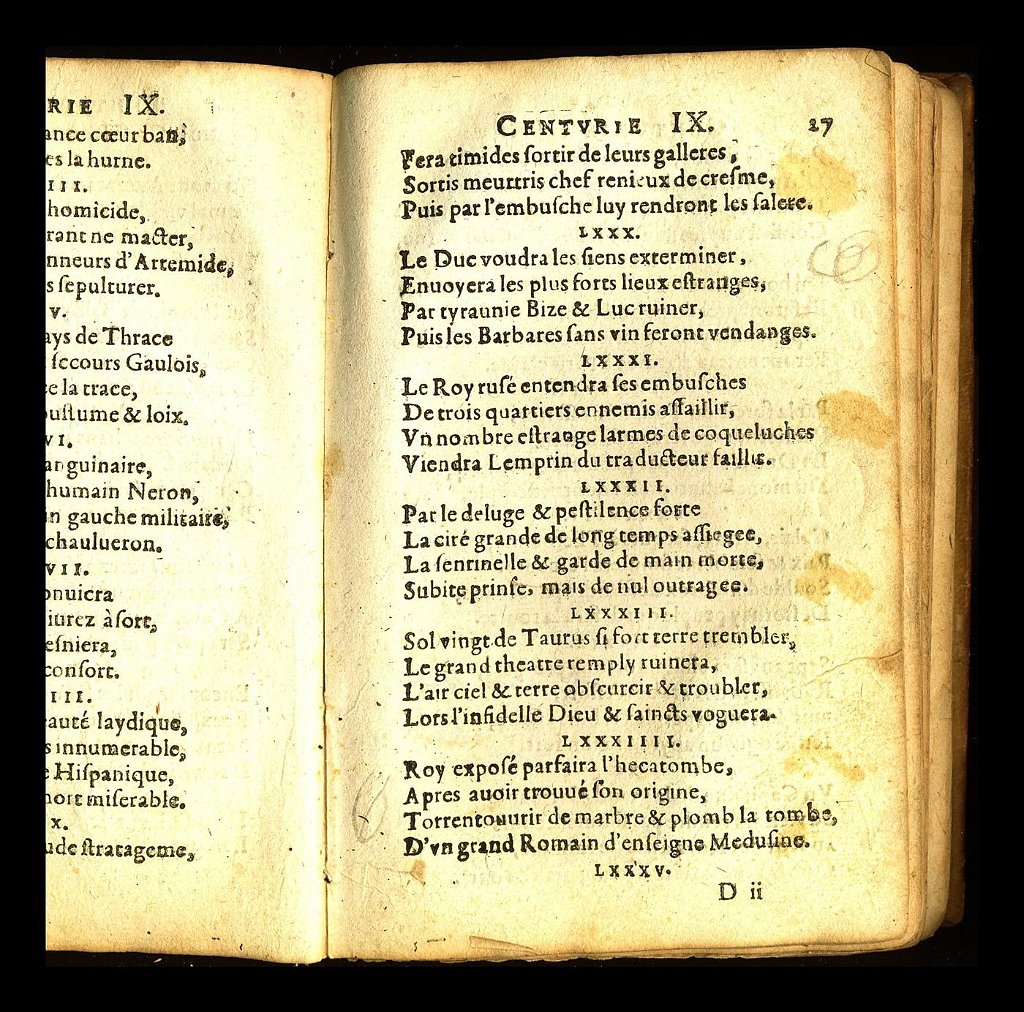 RIE IX.
ance cœur batt,
es la hurne.
III.
homicide,
rant ne macter,
nneurs d'Artemide,
s ſepulturer.
V.
ays de Thrace
ſecours Gaulois,
e la trace,
ouſtume & loix.
VI.
anguinaire,
humain Neron,
n gauche militaire,
chaulueron.
VII.
onuiera
iurez à ſort,
eſniera,
conſort.
III.
eauté laydique,
s innumerable,
e Hiſpanique,
mort miſerable.
X.
ude ſtratageme,
CENTVRIE IX. 27
Fera timides ſortir de leurs galleres,
Sortis meurtris chef renieux de creſme,
Puis par l'embuſche luy rendront les ſalere.
LXXX.
Le Duc voudra les ſiens exterminer,
Enuoyera les plus forts lieux eſtranges,
Par tyraunie Bize & Luc ruiner,
Puis les Barbares ſans vin feront vendanges.
LXXXI.
Le Roy ruſé entendra ſes embuſches
De trois quartiers ennemis aſſaillir,
Vn nombre eſtrange larmes de coqueluches
Viendra Lemprin du traducteur faillir.
LXXXII.
Par le deluge & peſtilence forte
La cité grande de long temps aſſiegee,
La ſentinelle & garde de main morte,
Subite prinſe, mais de nul outragee.
LXXXIII.
Sol vingt de Taurus ſi fort terre trembler,
Le grand theatre remply ruinera,
L'air ciel & terre obſcurcir & troubler,
Lors l'infidelle Dieu & ſaincts voguera.
LXXXIIII.
Roy expoſé parfaira l'hecatombe,
Apres auoir trouué ſon origine,
Torrent ouurir de marbre & plomb la tombe,
D'vn grand Romain d'enſeigne Meduſine.
LXXXV.
D ii